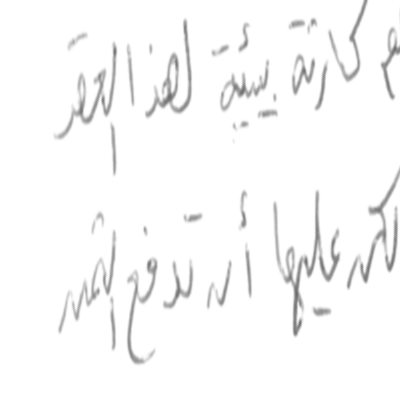 كارثة بيئية لهذا
لكن عليها أن تدفع الثمن